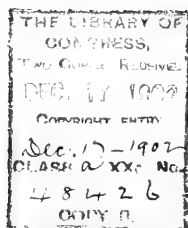 THE LIBRARY OF
CONGRESS,
TWO COPIES RECEIVED
DEC. 17 1902
COPYRIGHT ENTRY
Dec. 17-1902
CLASS a XXc No.
48426
COPY B.